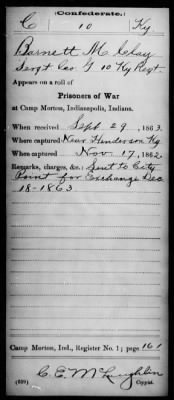 (Confederate.)
C 10 Ky
Barnett M. Clay
Sergt Co. G 10 Ky Regt.
Appears on a roll of
Prisoners of War
at Camp Morton, Indianapolis, Indiana.
When received Sept 29, 1863.
Where captured Near Henderson Ky
When captured Nov 17, 1862.
Remarks, charges, &c.: Sent to City
Point for Exchange Dec
18-1863
Camp Morton, Ind., Register No. 1; page 161
(639) C. E. McLaughlin
Copyist.